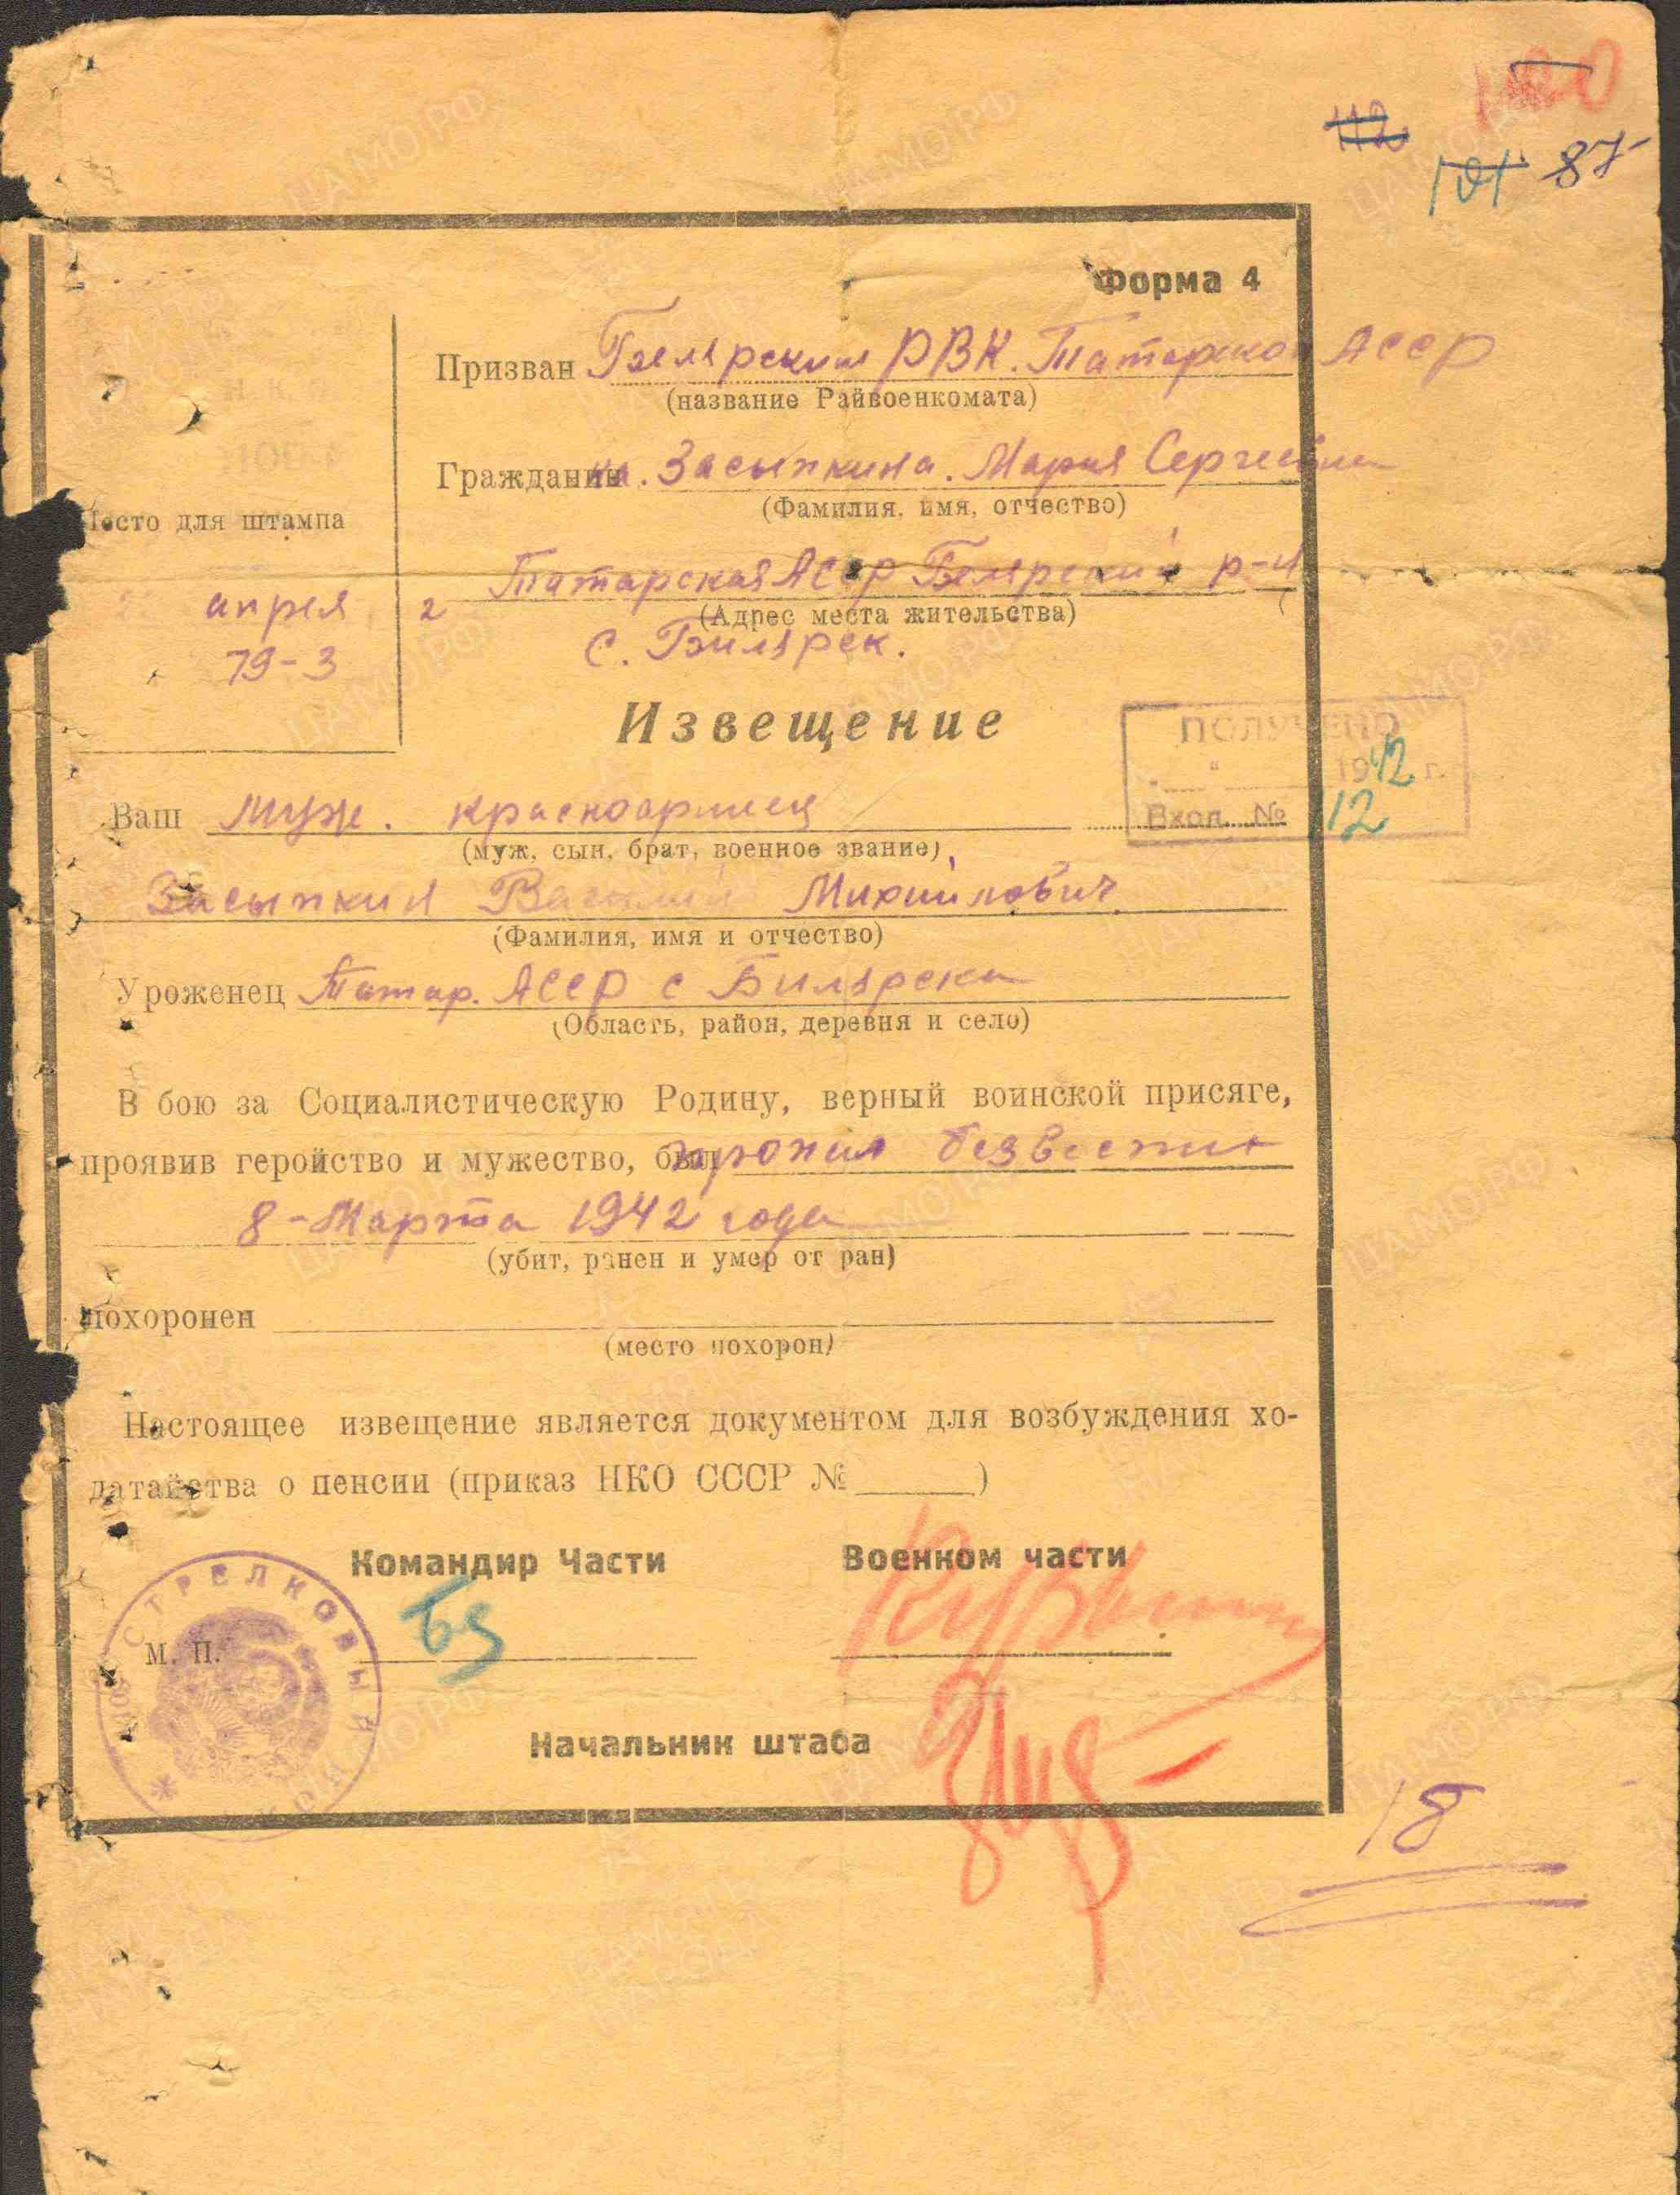 112
101 87
Форма 4
Призван Билярским РВК. Татарской АССР
(название Райвоенкомата)
Гражданинка. Засыпкина. Мария Сергеевна
(Фамилия, имя, отчество)
Место для штампа
Татарская АССР Билярский р-н
(Адрес места жительства)
с. Билярск.
апреля 2
79-3
Извещение
ПОЛУЧЕНО
1942 г.
Вход. № 12
Ваш муж. красноармеец
(муж, сын, брат, военное звание)
Засыпкин Василий Михайлович
(Фамилия, имя и отчество)
Уроженец Татар. АССР с Билярска
(Область, район, деревня и село)
В бою за Социалистическую Родину, верный воинской присяге,
проявив геройство и мужество, был пропал безвести
8-Марта 1942 года
(убит, ранен и умер от ран)
похоронен
(место похорон)
Настоящее извещение является документом для возбуждения хо-
датайства о пенсии (приказ НКО СССР № ______)
Командир Части Военком части
СТРЕЛКОВЫЙ
М. П.
Начальник штаба
18